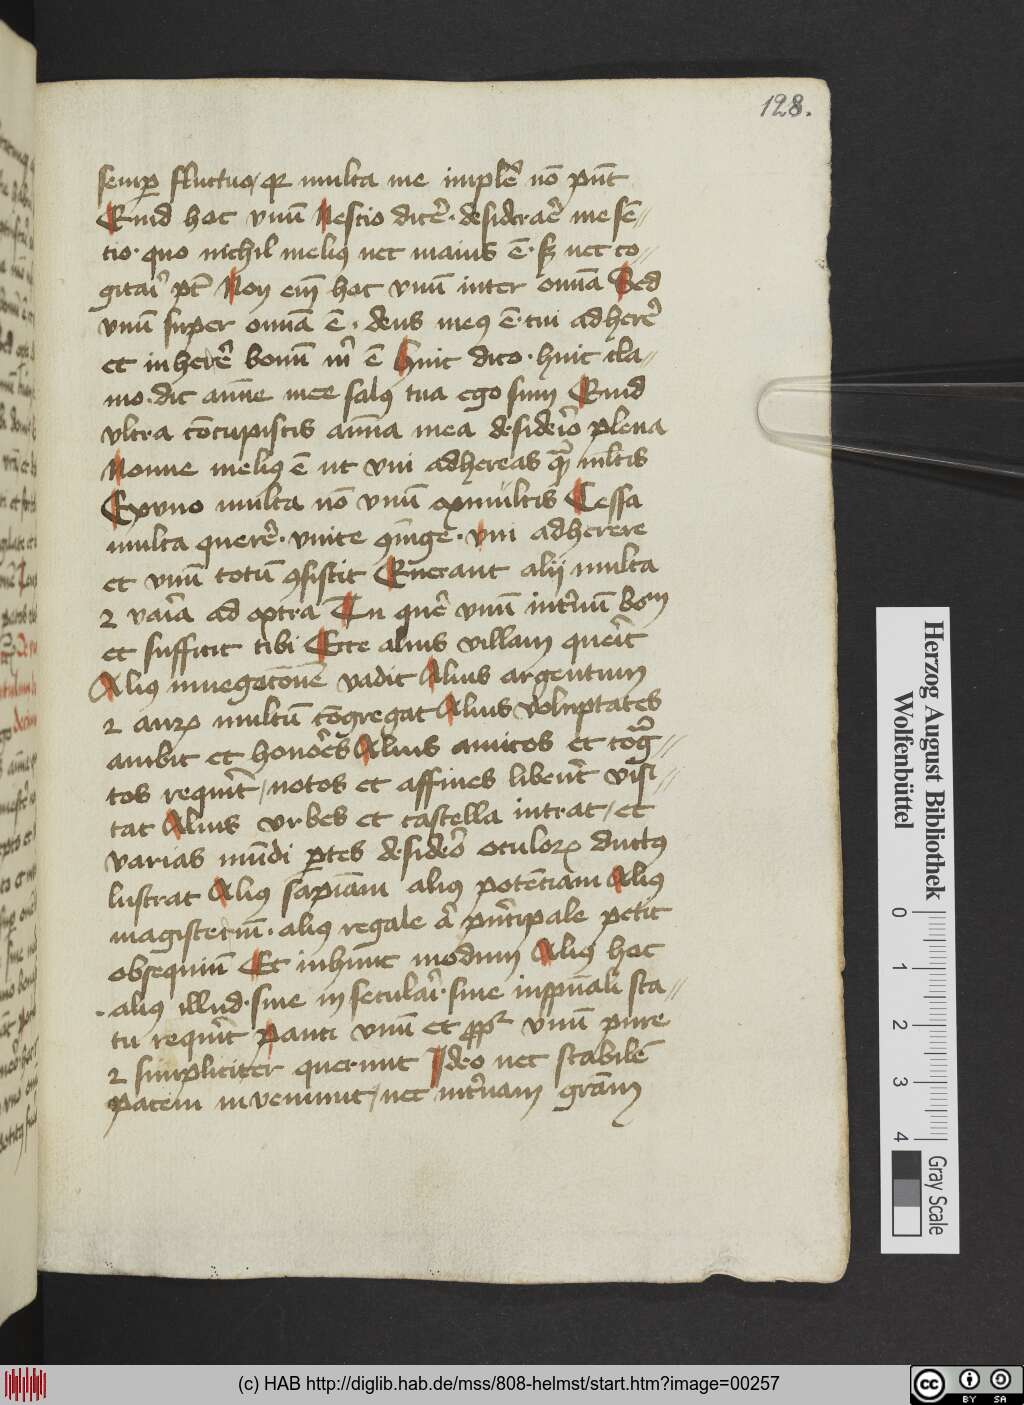 128.
semp fluctuo / qr multa me implē nō pn̄t
Quid hoc vnū Nescio dicē · desideraē me sē//
tio · quo nichil meliꝰ nec maius ē · sꝫ nec co//
gitaī pt̄ Non em̄ hoc vnū inter omīa Sed
vnū super omīa ē · deus meꝰ ē · cui adherē
et inherē bonū m̄ ē Huic dico · huic cla//
mo · dic anīe mee salꝰ tua ego sum Quid
vltra cōcupiscis anīa mea desiderio plena
Nonne meliꝰ ē ut vni adhereas qͣꝫ mltis
Ex vno multa nō vnū ex multis Cessa
multa querē · vnite ꝯiūge · vni adherere
et vnū totū ꝯsistit Querant alij multa
ꝛ vaīa ad extra Tu quē vnū int̄nū bom
et sufficit tibi Ecce alius villam querit
Aliꝰ in negōcōnē vadit Alius argentum
ꝛ auꝝ multū cōgregat Alius voluptates
ambit et honōēs Alius amicos et cōgͣ//
tos requīt / notos et affines libent̄ visi//
tat Alius vrbes et castella intrat / et
varias mūdi ptes desideō oculoꝝ ductꝰ
lustrat Aliꝰ sapiām aliꝰ potēciam Aliꝰ
magisteriū · aliꝰ regale ā pn̄cipale petit
obsequiū Et in hunc modum Aliꝰ hoc
· aliꝰ illud · siue in seculaī · siue in spūali sta//
tu requīt Pauci vnū et pp vnū pure
ꝛ simpliciter querunt Ideo nec stabilē
pacem inveniunt / nec int̄nam grām
Herzog August Bibliothek
Wolfenbüttel
0 1 2 3 4
Gray Scale
(c) HAB http://diglib.hab.de/mss/808-helmst/start.htm?image=00257
cc BY SA